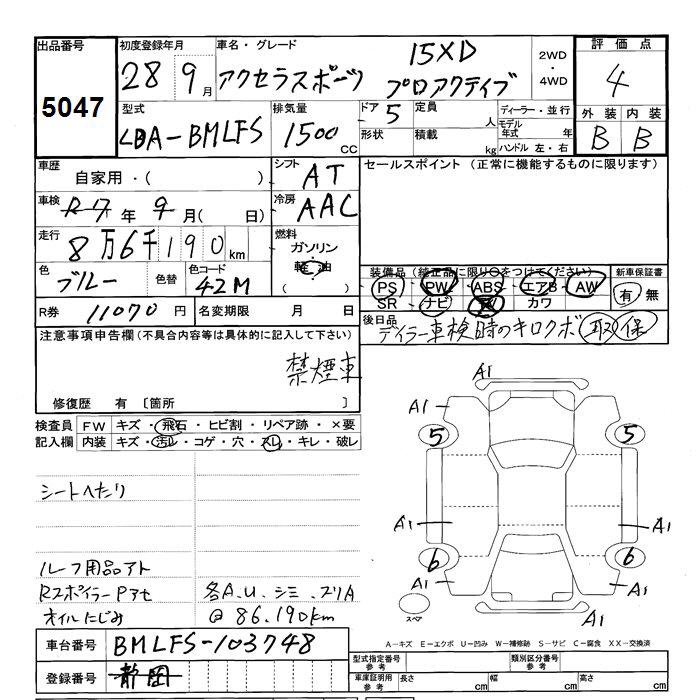 出品番号
5047
初度登録年月
28 9月
車名・グレード
アクセラスポーツ
15XD
プロアクティブ
2WD
・
4WD
評価点
4
型式
LDA-BMLFS
排気量
1500cc
ドア 5
定員 人
形状
積載 kg
ディーラー・並行
モデル年式 年
ハンドル 左・右
外装 内装
B B
車歴
自家用・( )
シフト
AT
セールスポイント (正常に機能するものに限ります)
車検
R7年 9月( 日)
冷房
AAC
走行
8万6千190km
燃料
ガソリン
軽油
( )
色
ブルー
色替
色コード
42M
装備品 (純正品に限り○をつけてください)
PS PW ABS エアB AW
SR ナビ カワ
新車保証書
有 無
R券
11070円
名変期限 月 日
後日品
デイラー車検時のキロクボ 取 保
注意事項申告欄(不具合内容等は具体的に記入して下さい)
禁煙車
修復歴 有 〔箇所 〕
検査員記入欄
FW キズ・飛石・ヒビ割・リペア跡・×要
内装 キズ・汚レ・コゲ・穴・スレ・キレ・破レ
シートへたり
ルーフ用品アト
RスポイラーPアセ
オイルにじみ
各A.U.シミ.ズリA
@86.190km
A1
A1 A1
5 5
A1 A1
6 6
A1 A1
A1
スペア
A-キズ E-エクボ U-凹み W-補修跡 S-サビ C-腐食 XX-交換済
車台番号
BMLFS-103748
登録番号
静岡
型式指定番号
参考
類別区分番号
参考
車庫証明用
参考
長さ cm
幅 cm
高さ cm